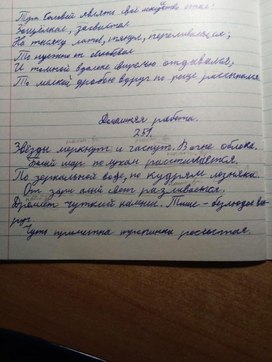 Тут Соловей являть своё искусство стал:
Защёлкал, засвистал
На тысячу ладов, тянул, переливался;
То нежно он ослабевал
И томной вдалеке свирелью отдавался,
То мелкой дробью вдруг по роще рассыпался.
Домашняя работа.
251.
Звёзды меркнут и гаснут. В огне облака.
Белый пар по лугам расстилается.
По зеркальной воде, по кудрям лозняка
От зари алый свет разливается.
Дремлет чуткий камыш. Тишь - безлюдье вок-
руг.
Чуть приметна тропинка росистая.